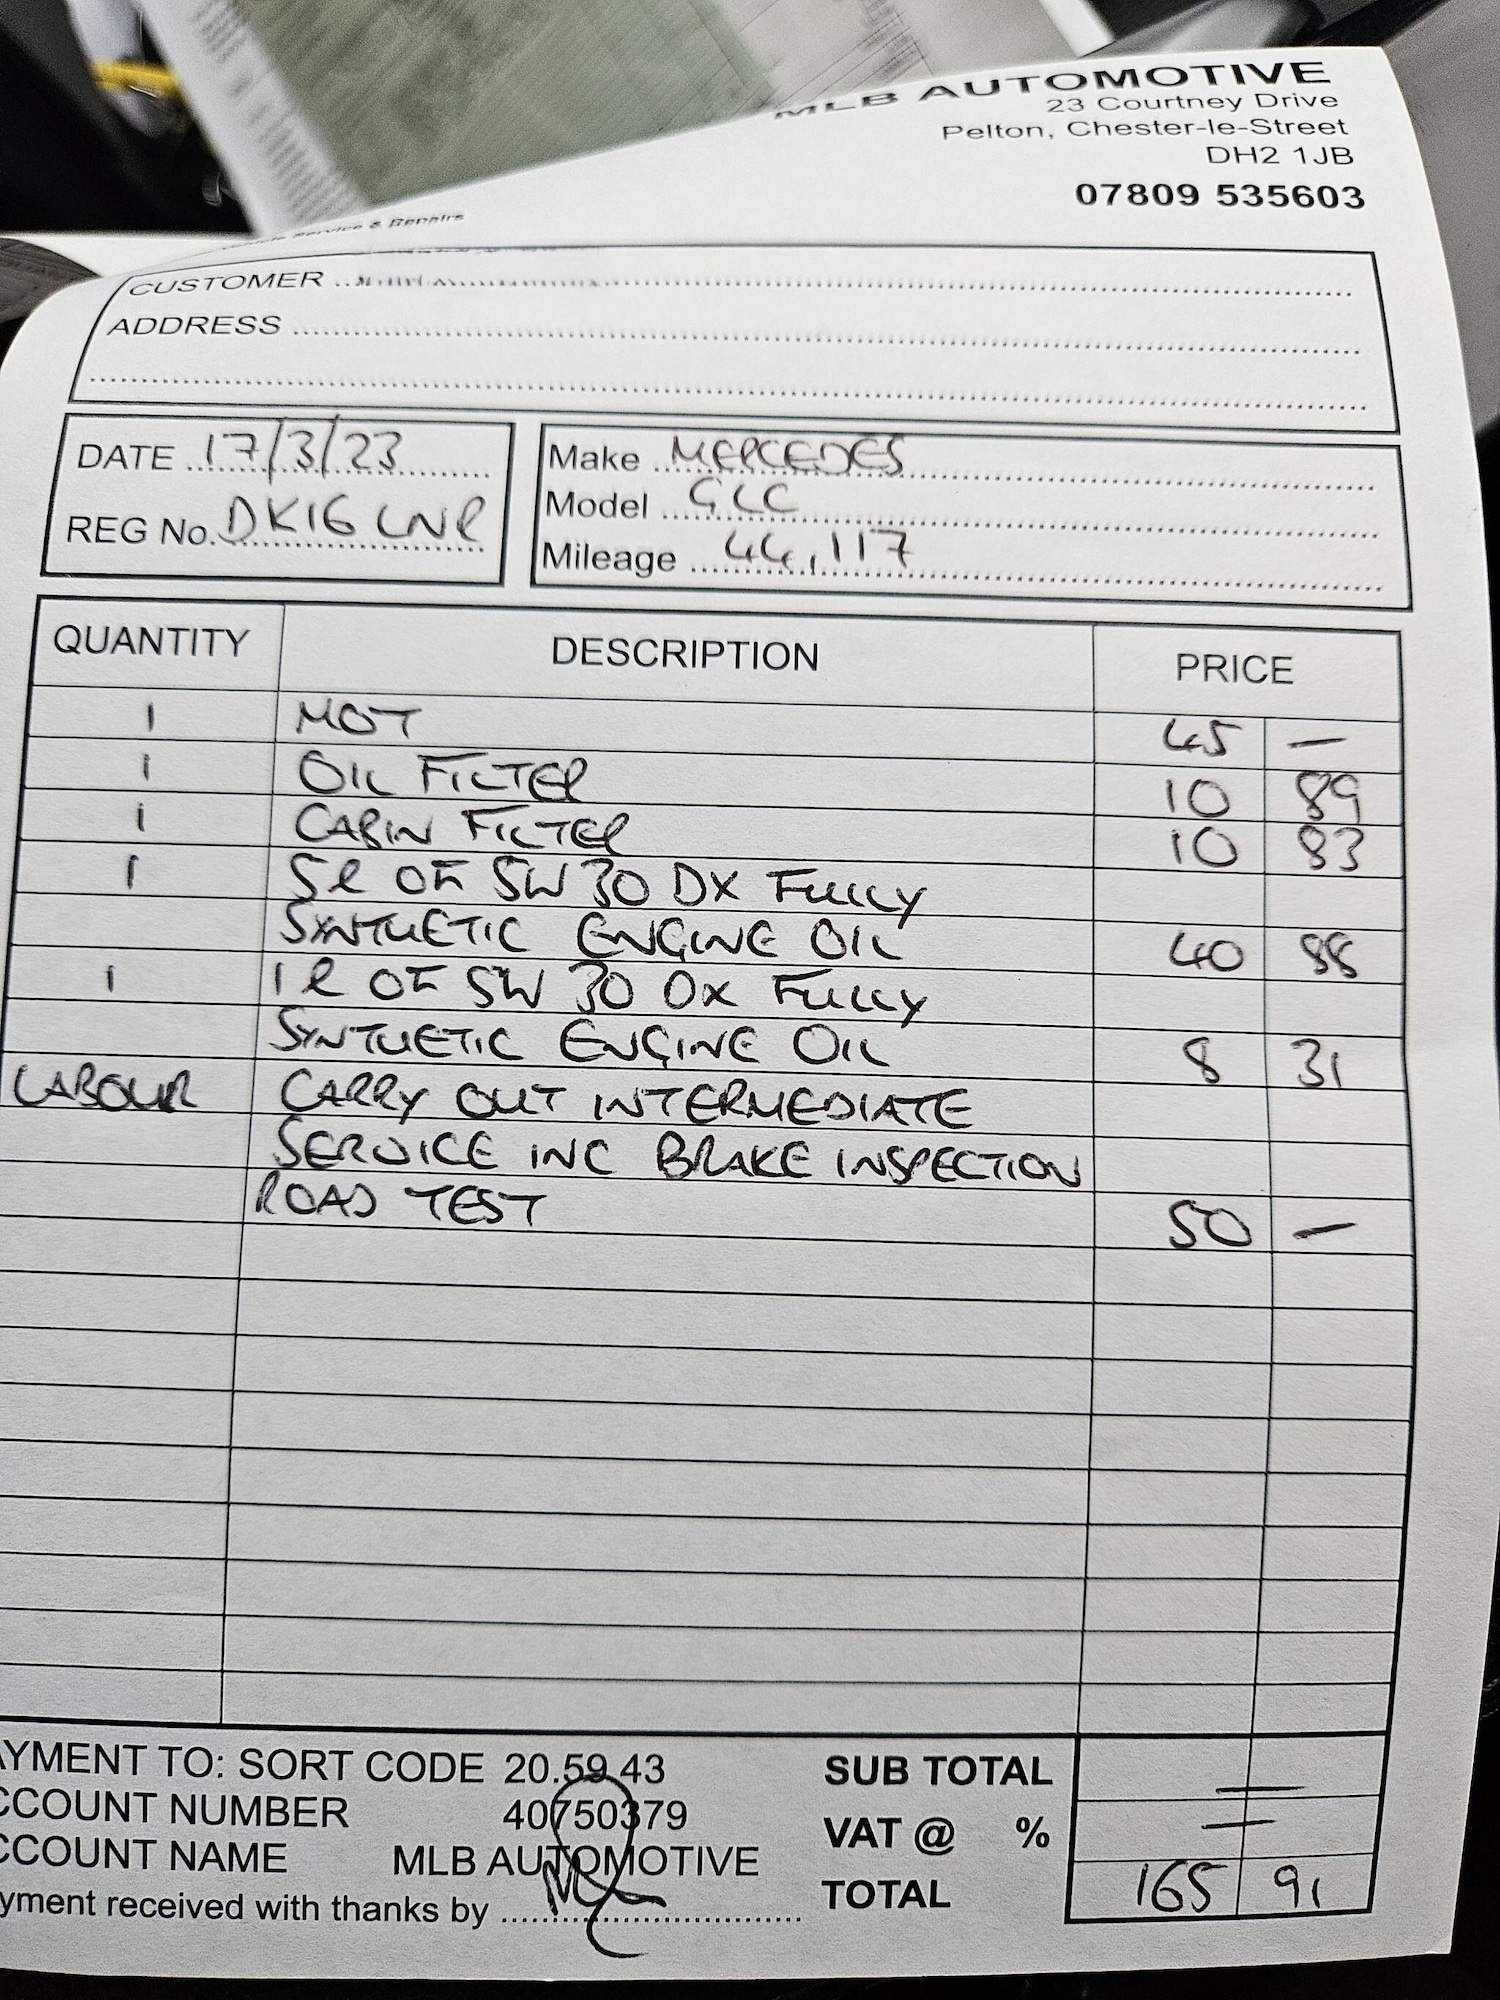 MLB AUTOMOTIVE
23 Courtney Drive
Pelton, Chester-le-Street
DH2 1JB
07809 535603
Service & Repairs
CUSTOMER
ADDRESS
DATE 17/3/23
REG No. DK16 LNR
Make MERCEDES
Model GLC
Mileage 44,117
QUANTITY DESCRIPTION PRICE
1 MOT 45 —
1 OIL FILTER 10 89
1 CABIN FILTER 10 83
1 5l OF 5W 30 DX FULLY
SYNTHETIC ENGINE OIL 40 88
1 1l OF 5W 30 DX FULLY
SYNTHETIC ENGINE OIL 8 31
LABOUR CARRY OUT INTERMEDIATE
SERVICE INC BRAKE INSPECTION
ROAD TEST 50 —
AYMENT TO: SORT CODE 20.59.43
CCOUNT NUMBER 40750379
CCOUNT NAME MLB AUTOMOTIVE
yment received with thanks by
SUB TOTAL —
VAT @ % —
TOTAL 165 91